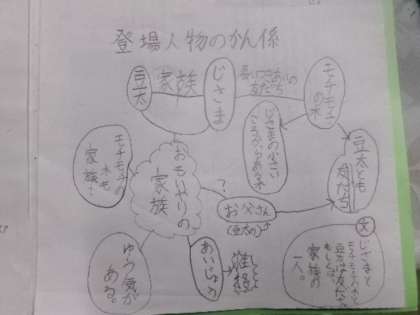 登場人物のかん係
豆太
家族
じさま
長いつきあいの
友だち
モチモチ
の木
じさまの父さい
ころからある木
モチモチの
木も
家族…
おもいやりの
家族
豆太とも
友だち
?
お父さん
(豆太の)
あいじょう
ゆう気が
ある。
じさまと
家族の
一人。